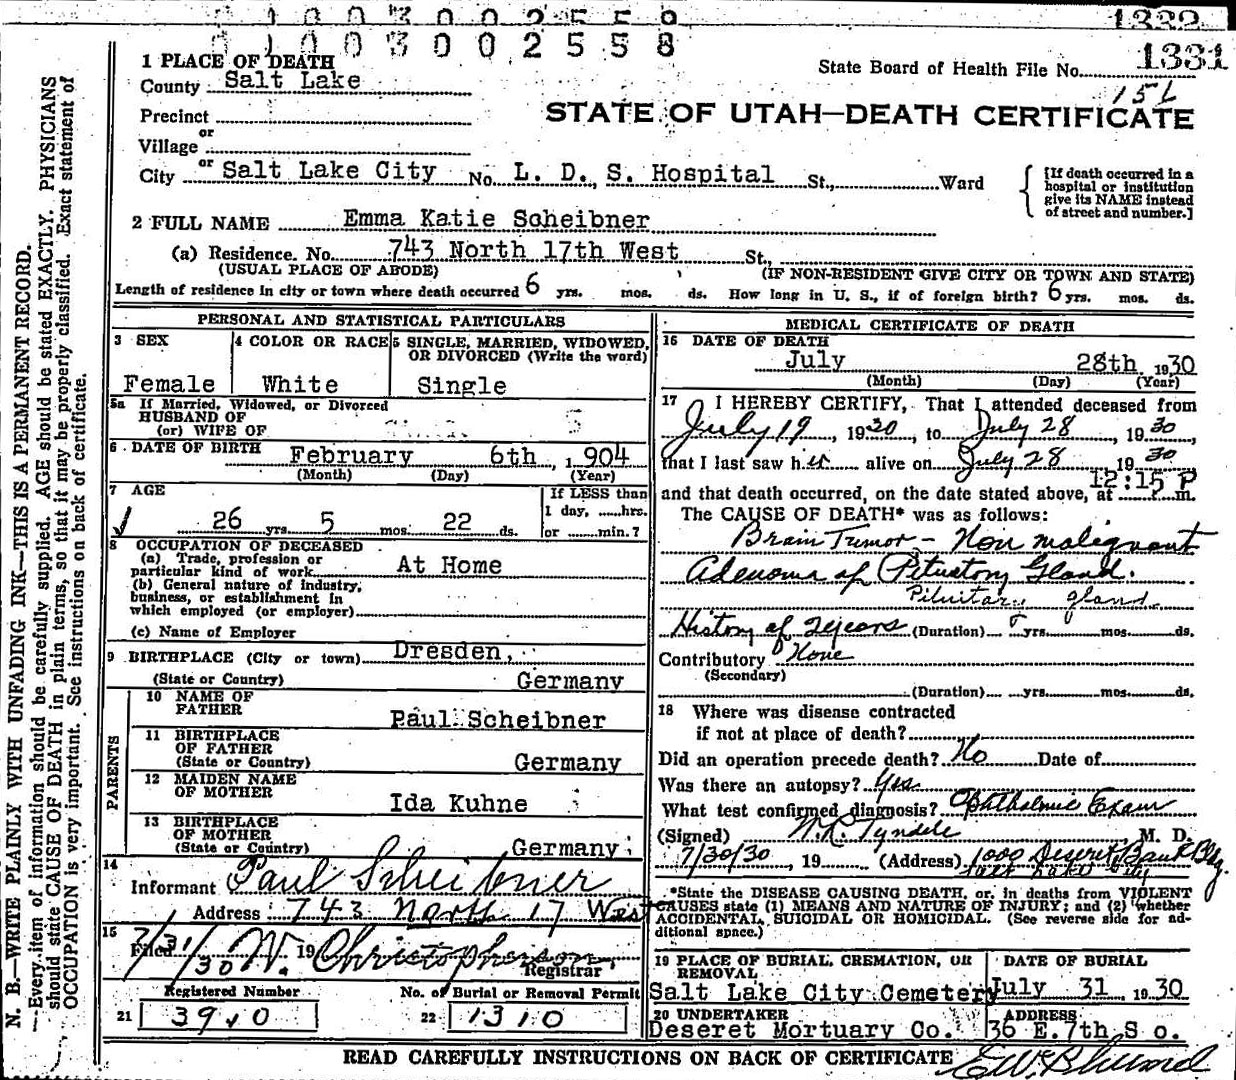 1332
0 1 0 0 3 0 0 2 5 5 9
0 1 0 0 3 0 0 2 5 5 8
1331
State Board of Health File No.
STATE OF UTAH—DEATH CERTIFICATE
1 PLACE OF DEATH
County Salt Lake
Precinct
or
Village
or
City Salt Lake City No. L. D. S. Hospital St., Ward
[If death occurred in a hospital or institution give its NAME instead of street and number.]
2 FULL NAME Emma Katie Scheibner
(a) Residence. No. 743 North 17th West St.,
(USUAL PLACE OF ABODE) (IF NON-RESIDENT GIVE CITY OR TOWN AND STATE)
Length of residence in city or town where death occurred 6 yrs. mos. ds. How long in U. S., if of foreign birth? 6 yrs. mos. ds.
PERSONAL AND STATISTICAL PARTICULARS
3 SEX
Female
4 COLOR OR RACE
White
5 SINGLE, MARRIED, WIDOWED, OR DIVORCED (Write the word)
Single
5a If Married, Widowed, or Divorced
HUSBAND OF
(or) WIFE OF
6 DATE OF BIRTH February 6th, 1904
(Month) (Day) (Year)
7 AGE
26 yrs. 5 mos. 22 ds.
If LESS than
1 day, ......hrs.
or .......min.?
8 OCCUPATION OF DECEASED
(a) Trade, profession or
particular kind of work At Home
(b) General nature of industry,
business, or establishment in
which employed (or employer)
(c) Name of Employer
9 BIRTHPLACE (City or town) Dresden,
(State or Country) Germany
PARENTS
10 NAME OF FATHER Paul Scheibner
11 BIRTHPLACE OF FATHER
(State or Country) Germany
12 MAIDEN NAME OF MOTHER Ida Kuhne
13 BIRTHPLACE OF MOTHER
(State or Country) Germany
14
Informant Paul Scheibner
Address 743 North 17 West
15
Filed 7/31/30 19 W. Christopherson
Registrar
Registered Number
21 3910
No. of Burial or Removal Permit
22 1310
MEDICAL CERTIFICATE OF DEATH
16 DATE OF DEATH
July 28th 1930
(Month) (Day) (Year)
17 I HEREBY CERTIFY, That I attended deceased from
July 19, 1930, to July 28, 1930,
that I last saw her alive on July 28 1930
12:15 P
and that death occurred, on the date stated above, at m.
The CAUSE OF DEATH* was as follows:
Brain Tumor - Non malignant
Adenoma of Pituatory Gland.
Pituitary gland
History of 2 years (Duration) yrs. mos. ds.
Contributory None
(Secondary)
(Duration) yrs. mos. ds.
18 Where was disease contracted
if not at place of death?
Did an operation precede death? No Date of
Was there an autopsy? Yes
What test confirmed diagnosis? Ophthalmic Exam
(Signed) W.R. Tyndale M. D.
7/30/30, 19 (Address) 1000 Deseret Bank Bldg.
Salt Lake City
*State the DISEASE CAUSING DEATH, or, in deaths from VIOLENT
CAUSES state (1) MEANS AND NATURE OF INJURY; and (2) whether
ACCIDENTAL, SUICIDAL OR HOMICIDAL. (See reverse side for ad-
ditional space.)
19 PLACE OF BURIAL, CREMATION, OR REMOVAL
Salt Lake City Cemetery
DATE OF BURIAL
July 31 1930
20 UNDERTAKER
Deseret Mortuary Co.
ADDRESS
36 E. 7th S o.
READ CAREFULLY INSTRUCTIONS ON BACK OF CERTIFICATE
N. B.—WRITE PLAINLY WITH UNFADING INK—THIS IS A PERMANENT RECORD.
—Every item of information should be carefully supplied. AGE should be stated EXACTLY. PHYSICIANS
should state CAUSE OF DEATH in plain terms, so that it may be properly classified. Exact statement of
OCCUPATION is very important. See instructions on back of certificate.